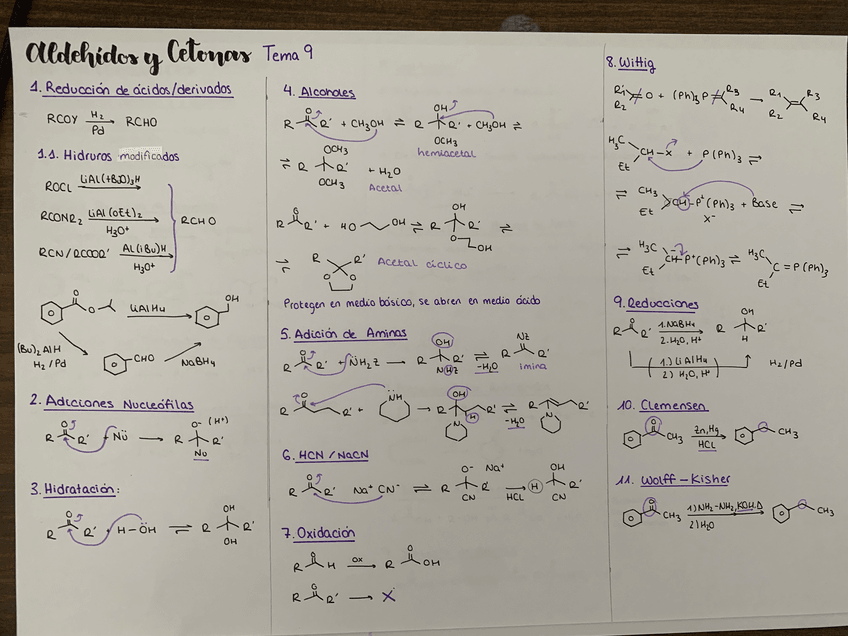 Aldehídos y Cetonas Tema 9
1. Reducción de ácidos/derivados
RCOY H2 Pd RCHO
1.1. Hidruros modificados
ROCl LiAl(+BuO)3H
RCONR2 LiAl(OEt)2 H3O+ RCHO
RCN/RCOOR' Al(iBu)H H3O+
O O LiAlH4 OH
(Bu)2AlH
H2/Pd CHO NaBH4
2. Adicciones Nucleófilas
R O R' + Nü → R O- (H+) R' Nu
3. Hidratación:
R O R' + H-ÖH ⇌ R OH R' OH
4. Alcoholes
R O R' + CH3OH ⇌ R OH R' + CH3OH ⇌
OCH3
hemiacetal
⇌ R OCH3 R' + H2O
OCH3 Acetal
R O R' + HO OH ⇌ R OH R' ⇌
O OH
⇌ R R' Acetal cíclico
O O
Protegen en medio básico, se abren en medio ácido
5. Adición de Aminas
R O R' + N̈H2Z → R OH R' ⇌ NZ R R'
NHZ -H2O imina
O R' + N̈H → R OH R' H ⇌ R R'
N -H2O N
6. HCN / NaCN
R O R' Na+ CN- ⇌ R O- Na+ R' CN → HCl H R OH R' CN
7. Oxidación
R O H OX → R O OH
R O R' → X
8. Wittig
R1 R2 O + (Ph)3P R3 R4 → R1 R2 R3 R4
H3C Et CH-X + P(Ph)3 ⇌
⇌ CH3 Et CH-P+(Ph)3 + Base ⇌
X-
⇌ H3C Et CH-P+(Ph)3 ⇌ H3C Et C=P(Ph)3
9. Reducciones
R O R' 1. NaBH4 2. H2O, H+ → R OH R' H
(1.) LiAlH4 2) H2O, H+) H2/Pd
10. Clemensen
O CH3 Zn, Hg HCl → CH3
11. Wolff-Kisher
O CH3 1) NH2-NH2, KOH, Δ 2) H2O → CH3